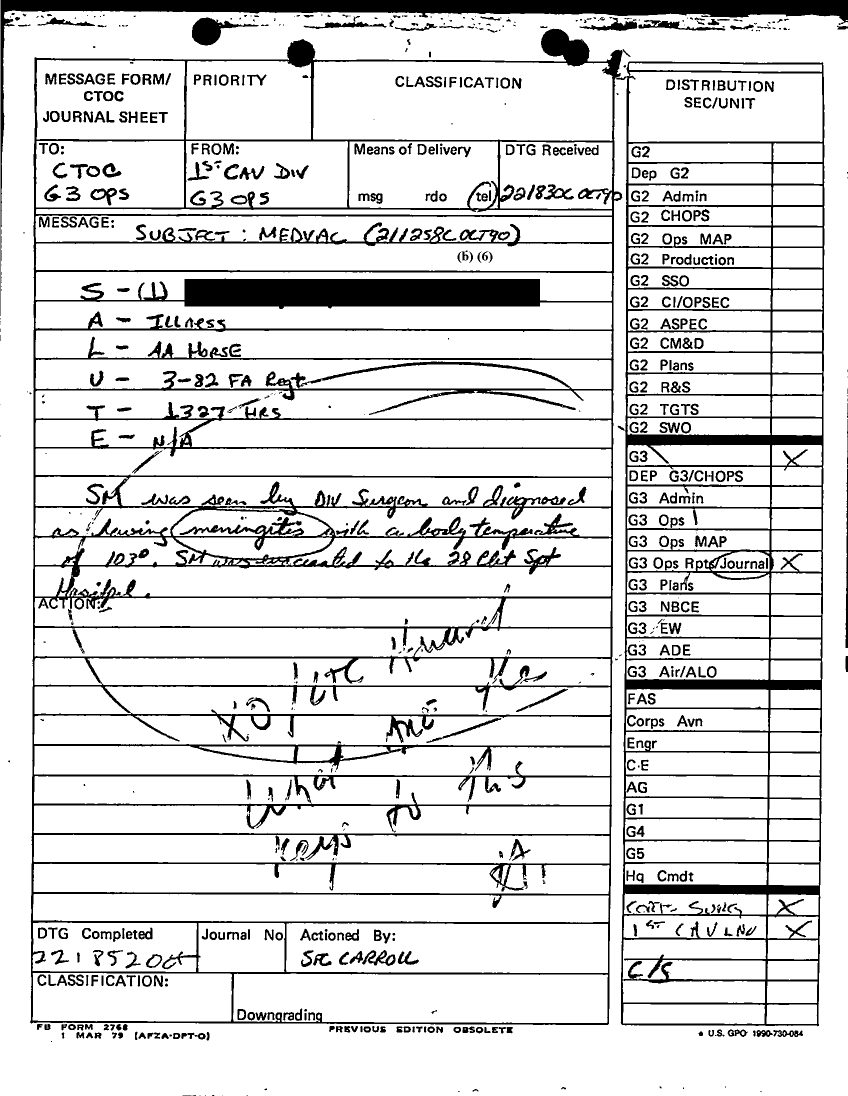 MESSAGE FORM/
CTOC
JOURNAL SHEET
PRIORITY
CLASSIFICATION
TO:
CTOC
G3 OPS
FROM:
1ST CAV DIV
G3 OPS
Means of Delivery
msg rdo tel
DTG Received
221830C OCT90
MESSAGE:
SUBJECT: MEDVAC (211258C OCT90)
(b) (6)
S - (1)
A - Illness
L - AA HORSE
U - 3-82 FA Regt
T - 1327 HRS
E - N/A
SM was seen by DIV Surgeon and diagnosed
as having meningitis with a body temperature
of 103°. SM was evacuated to the 28 Cbt Spt
Hospital.
ACTION:
XO / LTC Howard
What are the
keys to this
DTG Completed
221852 Oct
Journal No.
Actioned By:
SFC CARROLL
CLASSIFICATION:
Downgrading
FB FORM 2768
1 MAR 79 (AFZA-DPT-O)
PREVIOUS EDITION OBSOLETE
DISTRIBUTION
SEC/UNIT
G2
Dep G2
G2 Admin
G2 CHOPS
G2 Ops MAP
G2 Production
G2 SSO
G2 CI/OPSEC
G2 ASPEC
G2 CM&D
G2 Plans
G2 R&S
G2 TGTS
G2 SWO
G3 X
DEP G3/CHOPS
G3 Admin
G3 Ops
G3 Ops MAP
G3 Ops Rpts/Journal X
G3 Plans
G3 NBCE
G3 EW
G3 ADE
G3 Air/ALO
FAS
Corps Avn
Engr
C-E
AG
G1
G4
G5
Hq Cmdt
CORPS SURG X
1ST CAV LNO X
C/S
U.S. GPO 1990-730-084